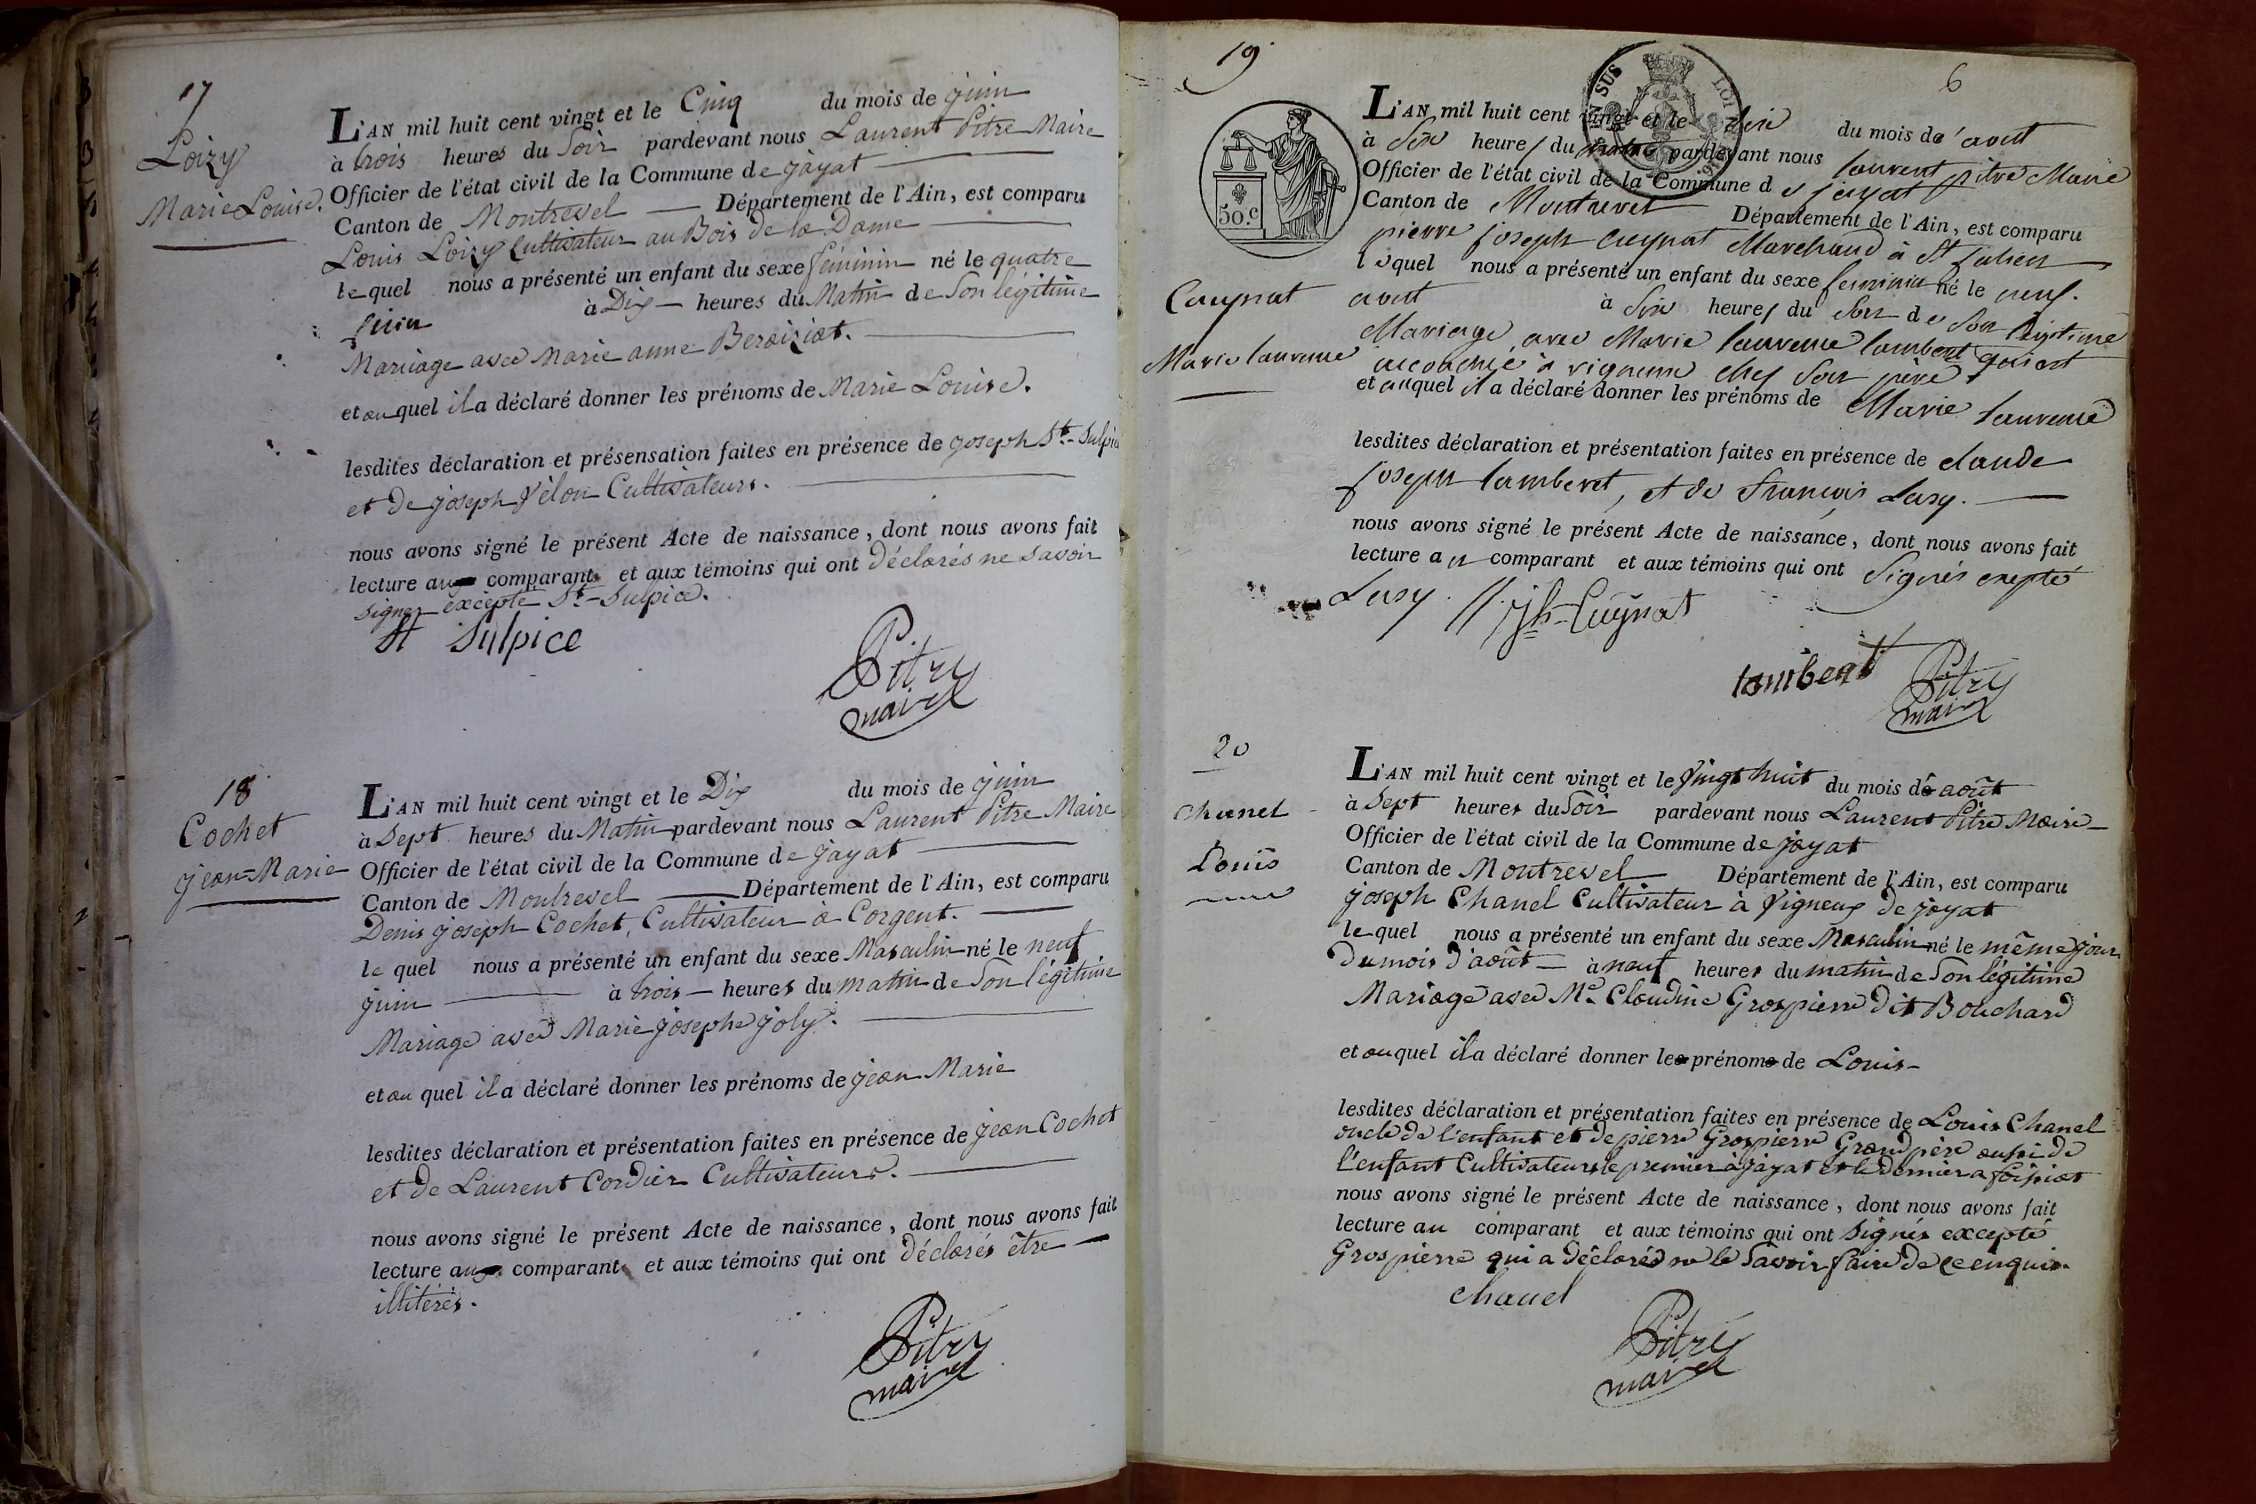 17
Loizy
Marie Louise.
L'AN mil huit cent vingt et le Cinq du mois de juin
à trois heures du Soir pardevant nous Laurent Pitre Maire
Officier de l'état civil de la Commune de jayat
Canton de Montrevel Département de l'Ain, est comparu
Louis Loizy Cultivateur au Bois de la Dame
lequel nous a présenté un enfant du sexe féminin né le quatre
juin à Dix heures du Matin de Son légitime
Mariage avec Marie anne Beraiziat.
et au quel il a déclaré donner les prénoms de Marie Louise.
lesdites déclaration et présensation faites en présence de joseph St-Sulpice
et de joseph Vélon Cultivateurs.
nous avons signé le présent Acte de naissance, dont nous avons fait
lecture au comparant et aux témoins qui ont Déclarés ne savoir
signer excepté St-Sulpice.
St Sulpice
Pitre
maire
18
Cochet
jean-Marie
L'AN mil huit cent vingt et le Dix du mois de juin
à Sept heures du Matin pardevant nous Laurent Pitre Maire
Officier de l'état civil de la Commune de jayat
Canton de Montrevel Département de l'Ain, est comparu
Denis joseph Cochet, Cultivateur à Corgent.
le quel nous a présenté un enfant du sexe Masculin né le neuf
juin à trois heures du matin de Son légitime
Mariage avec Marie josephe joly.
et au quel il a déclaré donner les prénoms de jean Marie
lesdites déclaration et présentation faites en présence de jean Cochet
et de Laurent Cordier Cultivateurs.
nous avons signé le présent Acte de naissance, dont nous avons fait
lecture au comparant et aux témoins qui ont Déclarés être
illitérés.
Pitre
maire
19
6
50.c
SUS
LOI
Cuynat
Marie laurence
L'AN mil huit cent vingt et le dix du mois de aout
à Six heures du matin pardevant nous laurent pitre Maire
Officier de l'état civil de la Commune de jayat
Canton de Montrevel Département de l'Ain, est comparu
pierre joseph cuynat Marchand à St julien
lequel nous a présenté un enfant du sexe feminin né le neuf.
aout à Six heures du Soir de Son légitime
Mariage avec Marie laurence lambert qui est
accouchée à vigneux chez Son père
et auquel il a déclaré donner les prénoms de Marie laurence
lesdites déclaration et présentation faites en présence de claude
joseph lamberet, et de françois Lasy.
nous avons signé le présent Acte de naissance, dont nous avons fait
lecture au comparant et aux témoins qui ont Signés excepté
Lasy. jh-Cuÿnat
lambert
Pitre
maire
20
Chanel
Louis
L'AN mil huit cent vingt et le Vingt huit du mois d'août
à Sept heures du Soir pardevant nous Laurent Pitre Maire
Officier de l'état civil de la Commune de jayat
Canton de Montrevel Département de l'Ain, est comparu
joseph Chanel Cultivateur à Vigneux de jayat
le quel nous a présenté un enfant du sexe Masculin né le même jour
Du mois d'août à neuf heures du matin de Son légitime
Mariage avec Me Claudine Grospierre Dit Bouchard
et au quel il a déclaré donner le prénom de Louis
lesdites déclaration et présentation faites en présence de Louis Chanel
oncle de l'enfant et de pierre Grospierre Grand père aussi de
l'enfant Cultivateurs le premier à jayat et le dernier a foissiat
nous avons signé le présent Acte de naissance, dont nous avons fait
lecture au comparant et aux témoins qui ont Signés excepté
Grospierre qui a déclaré ne le Savoir faire De ce enquis.
chanel
Pitre
maire